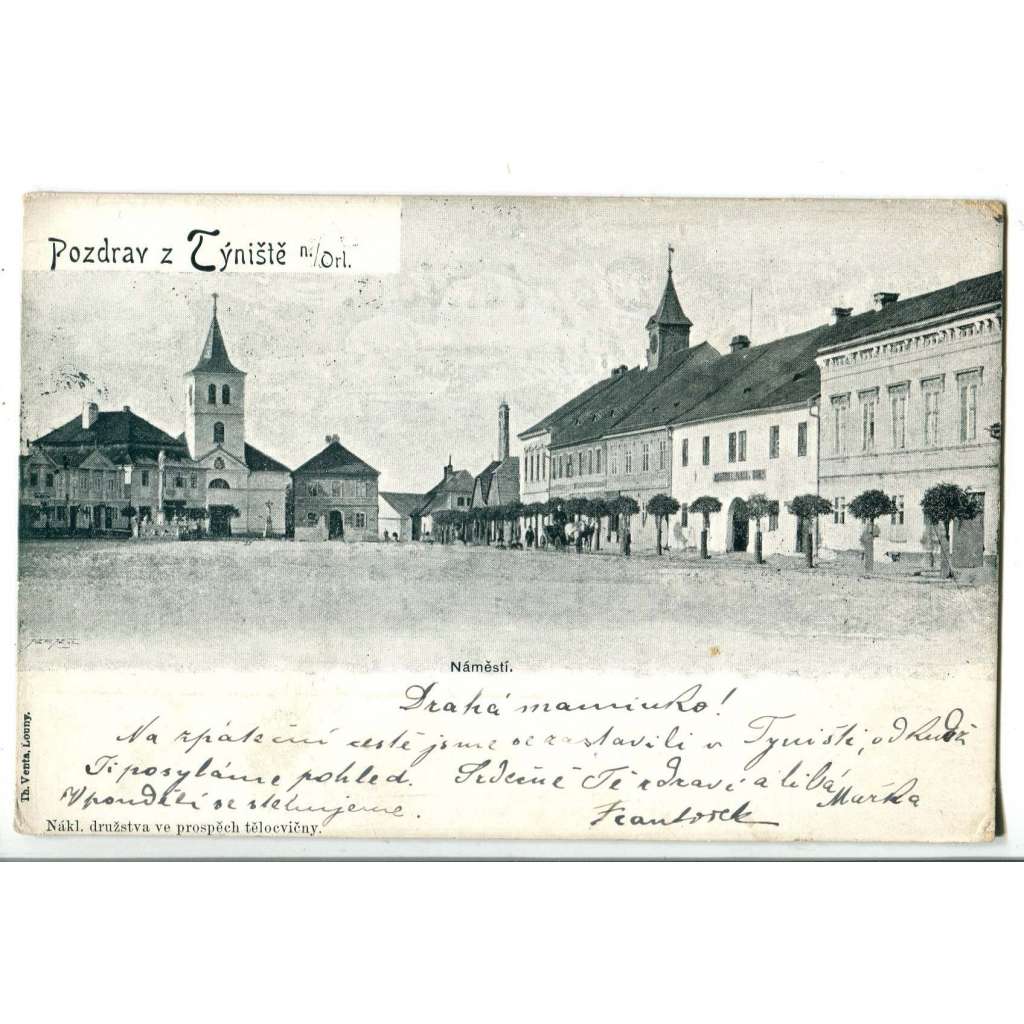 Pozdrav z Týniště n./Orl.
Náměstí.
Drahá maminko!
Na zpáteční cestě jsme se zastavili v Týništi, odkudž
Ti posyláme pohled. Srdečně Tě zdraví a líbá
V pondělí se stěhujeme. Mařka
Frantošek
Nákl. družstva ve prospěch tělocvičny.
Th. Venta, Louny.